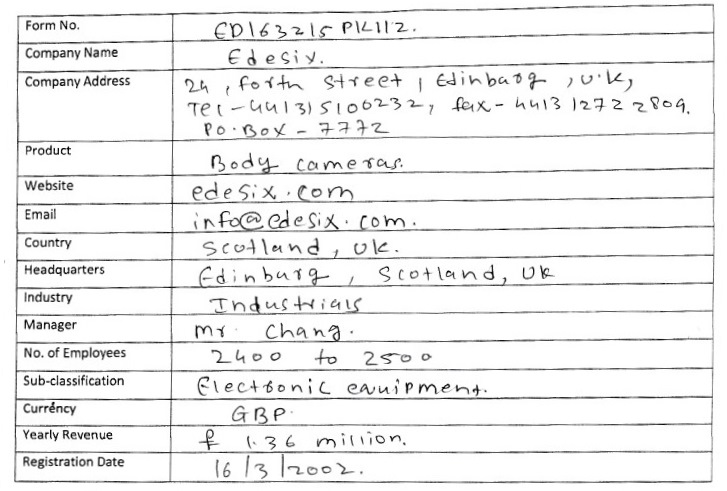 Form No. ED163215PK112.
Company Name Edesix.
Company Address 24, forth street, Edinburg, U.K,
Tel-441315100232, fax-441312722809.
P.O.Box - 7772
Product Body cameras.
Website edesix.com
Email info@edesix.com.
Country Scotland, UK.
Headquarters Edinburg, Scotland, UK
Industry Industrials
Manager Mr. Chang.
No. of Employees 2400 to 2500
Sub-classification Electronic equipment.
Currency GBP.
Yearly Revenue £ 1.36 million.
Registration Date 16/3/2002.